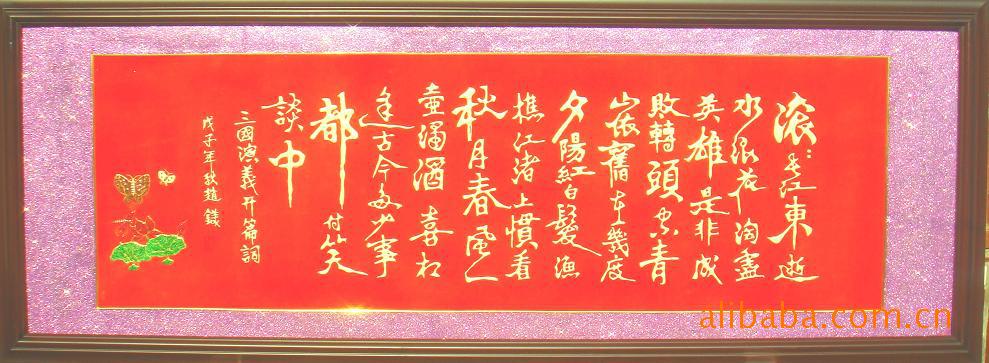 滚:长江東逝
水浪花淘盡
英雄是非成
敗轉頭空青
山依舊在幾度
夕陽紅白髮漁
樵江渚上慣看
秋月春風一
壺濁酒喜相
逢古今多少事
都付笑
談中
三國演義开篇詞
戊子年秋趙
alibaba.com.cn